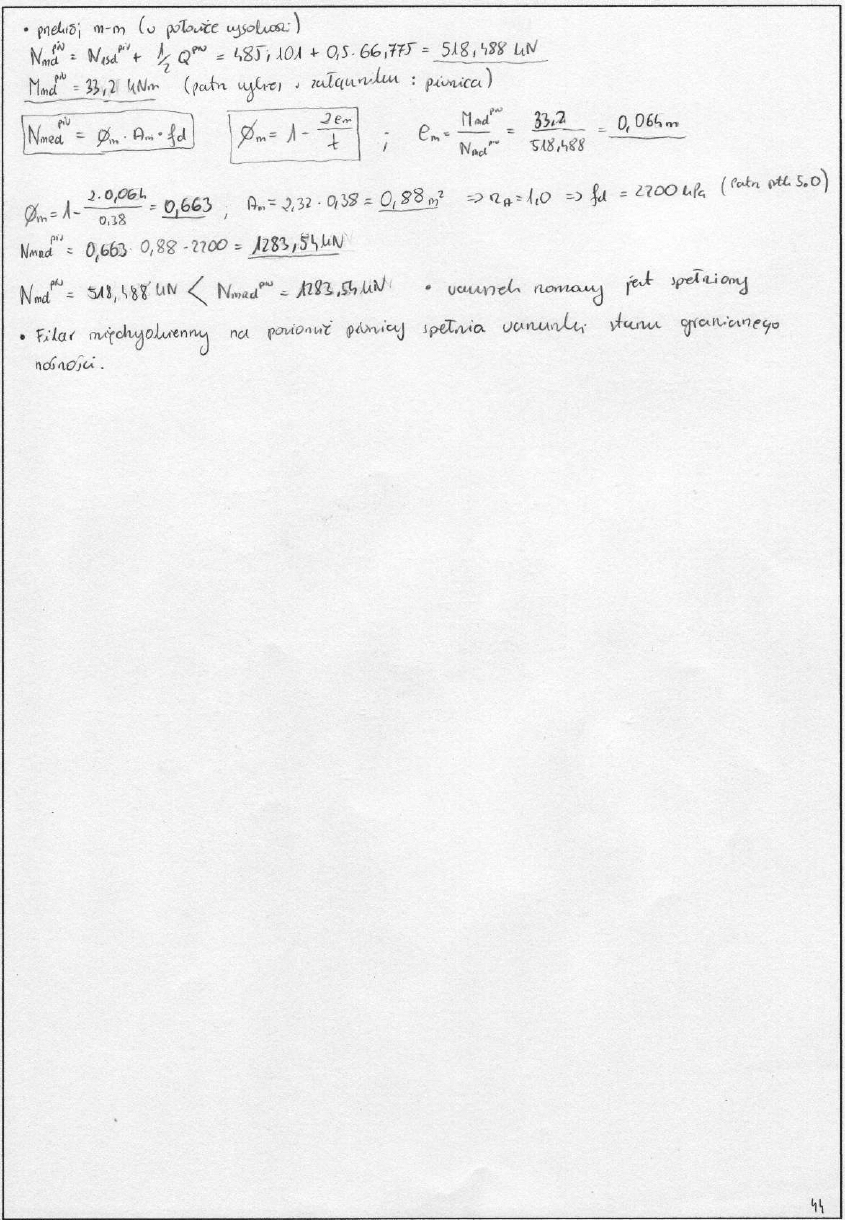 • przekrój m-m (w połowie wysokości)
Nmd^piw = N1sd^piw + 1/2 Q^piw = 485,101 + 0,5 · 66,775 = 518,488 kN
Mmd^piw = 33,2 kNm (patrz wykres w załączniku : piwnica)
Nmrd^piw = Øm · Am · fd   Øm = 1 - 2em/t ; em = Mmd^piw/Nmd^piw = 33,2/518,488 = 0,064 m
Øm = 1 - 2·0,064/0,38 = 0,663 ; Am = 2,32 · 0,38 = 0,88 m² => ηA = 1,0 => fd = 2200 kPa (patrz pkt 5.0)
Nmrd^piw = 0,663 · 0,88 · 2200 = 1283,54 kN
Nmd^piw = 518,488 kN < Nmrd^piw = 1283,54 kN • warunek normowy jest spełniony
• Filar międzyokienny na poziomie piwnicy spełnia warunki stanu granicznego
nośności.
44